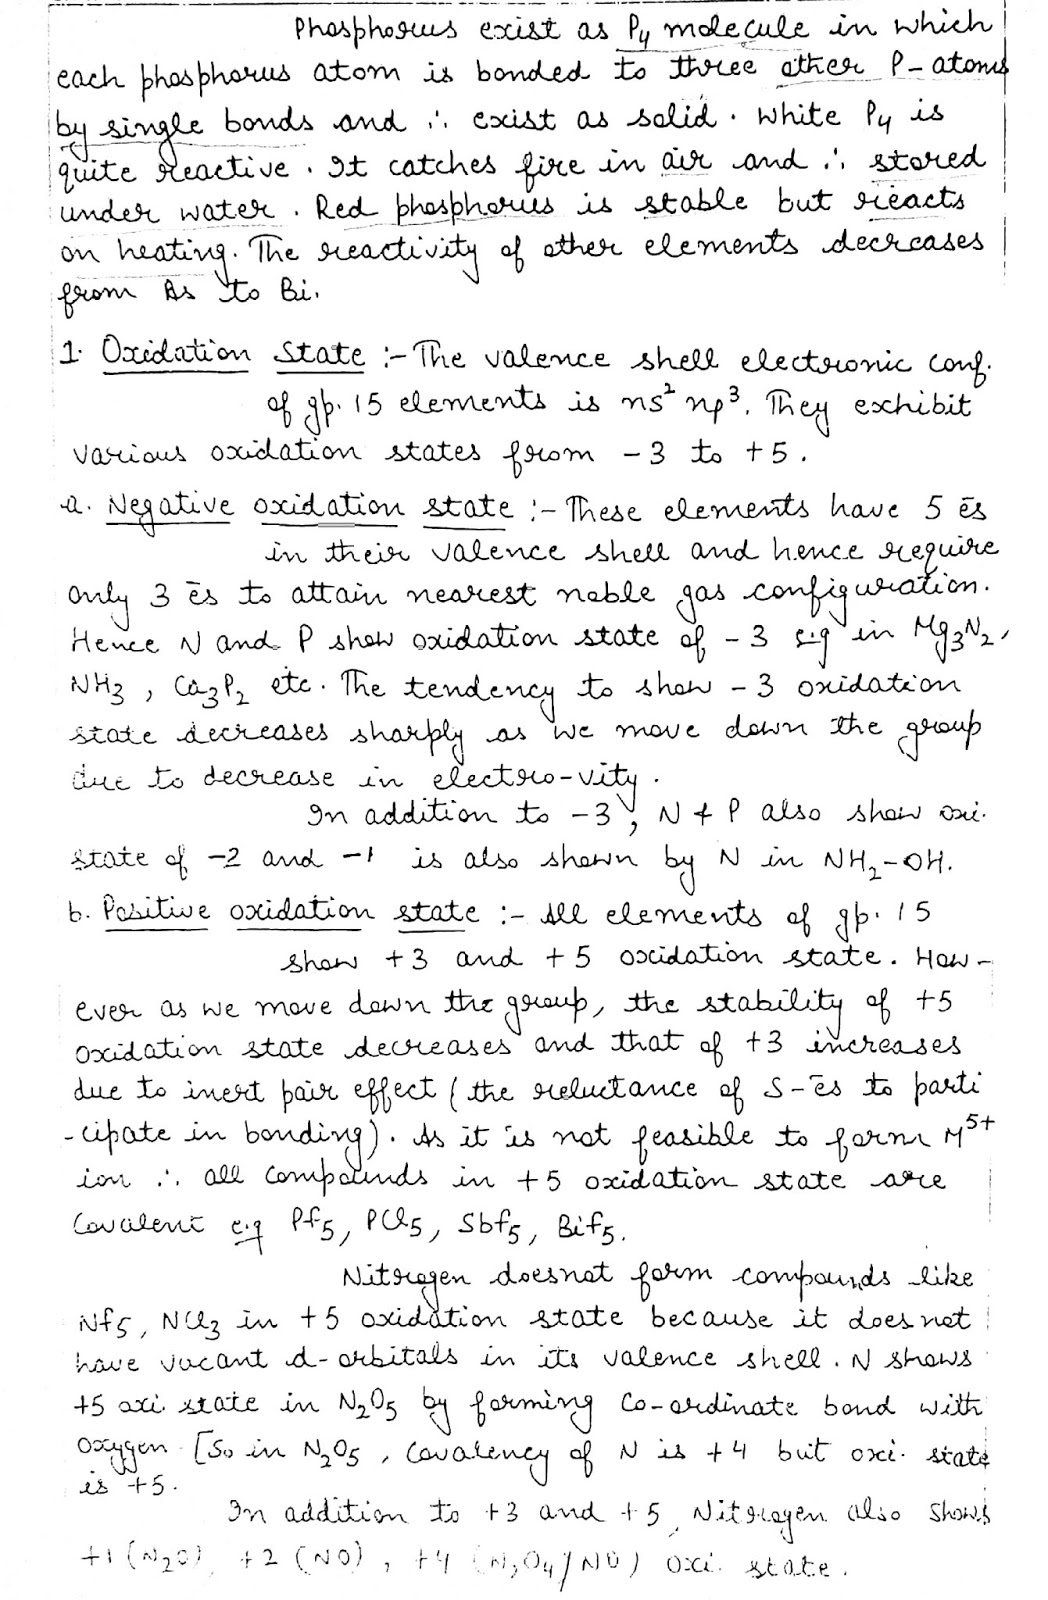 Phosphorus exist as P₄ molecule in which
each phosphorus atom is bonded to three other P-atoms
by single bonds and ∴ exist as solid. White P₄ is
quite reactive. It catches fire in air and ∴ stored
under water. Red phosphorus is stable but reacts
on heating. The reactivity of other elements decreases
from As to Bi.
1. Oxidation State :- The valence shell electronic conf.
of gp. 15 elements is ns² np³. They exhibit
various oxidation states from -3 to +5.
a. Negative oxidation state :- These elements have 5 ēs
in their valence shell and hence require
only 3 ēs to attain nearest noble gas configuration.
Hence N and P show oxidation state of -3 e.g in Mg₃N₂,
NH₃, Ca₃P₂ etc. The tendency to show -3 oxidation
state decreases sharply as we move down the group
due to decrease in electro-vity.
In addition to -3, N & P also show oxi.
state of -2 and -1 is also shown by N in NH₂-OH.
b. Positive oxidation state :- All elements of gp. 15
show +3 and +5 oxidation state. How-
ever as we move down the group, the stability of +5
oxidation state decreases and that of +3 increases
due to inert pair effect (the reluctance of S-ēs to parti
-cipate in bonding). As it is not feasible to form M⁵⁺
ion ∴ all compounds in +5 oxidation state are
Covalent e.g Pf₅, PCl₅, Sbf₅, Bif₅.
Nitrogen doesnot form compounds like
Nf₅, NCl₃ in +5 oxidation state because it does not
have vacant d-orbitals in its valence shell. N shows
+5 oxi state in N₂O₅ by forming Co-ordinate bond with
oxygen [So in N₂O₅, Covalency of N is +4 but oxi. state
is +5.
In addition to +3 and +5, Nitrogen also shows
+1 (N₂O), +2 (NO), +4 oxi. state.